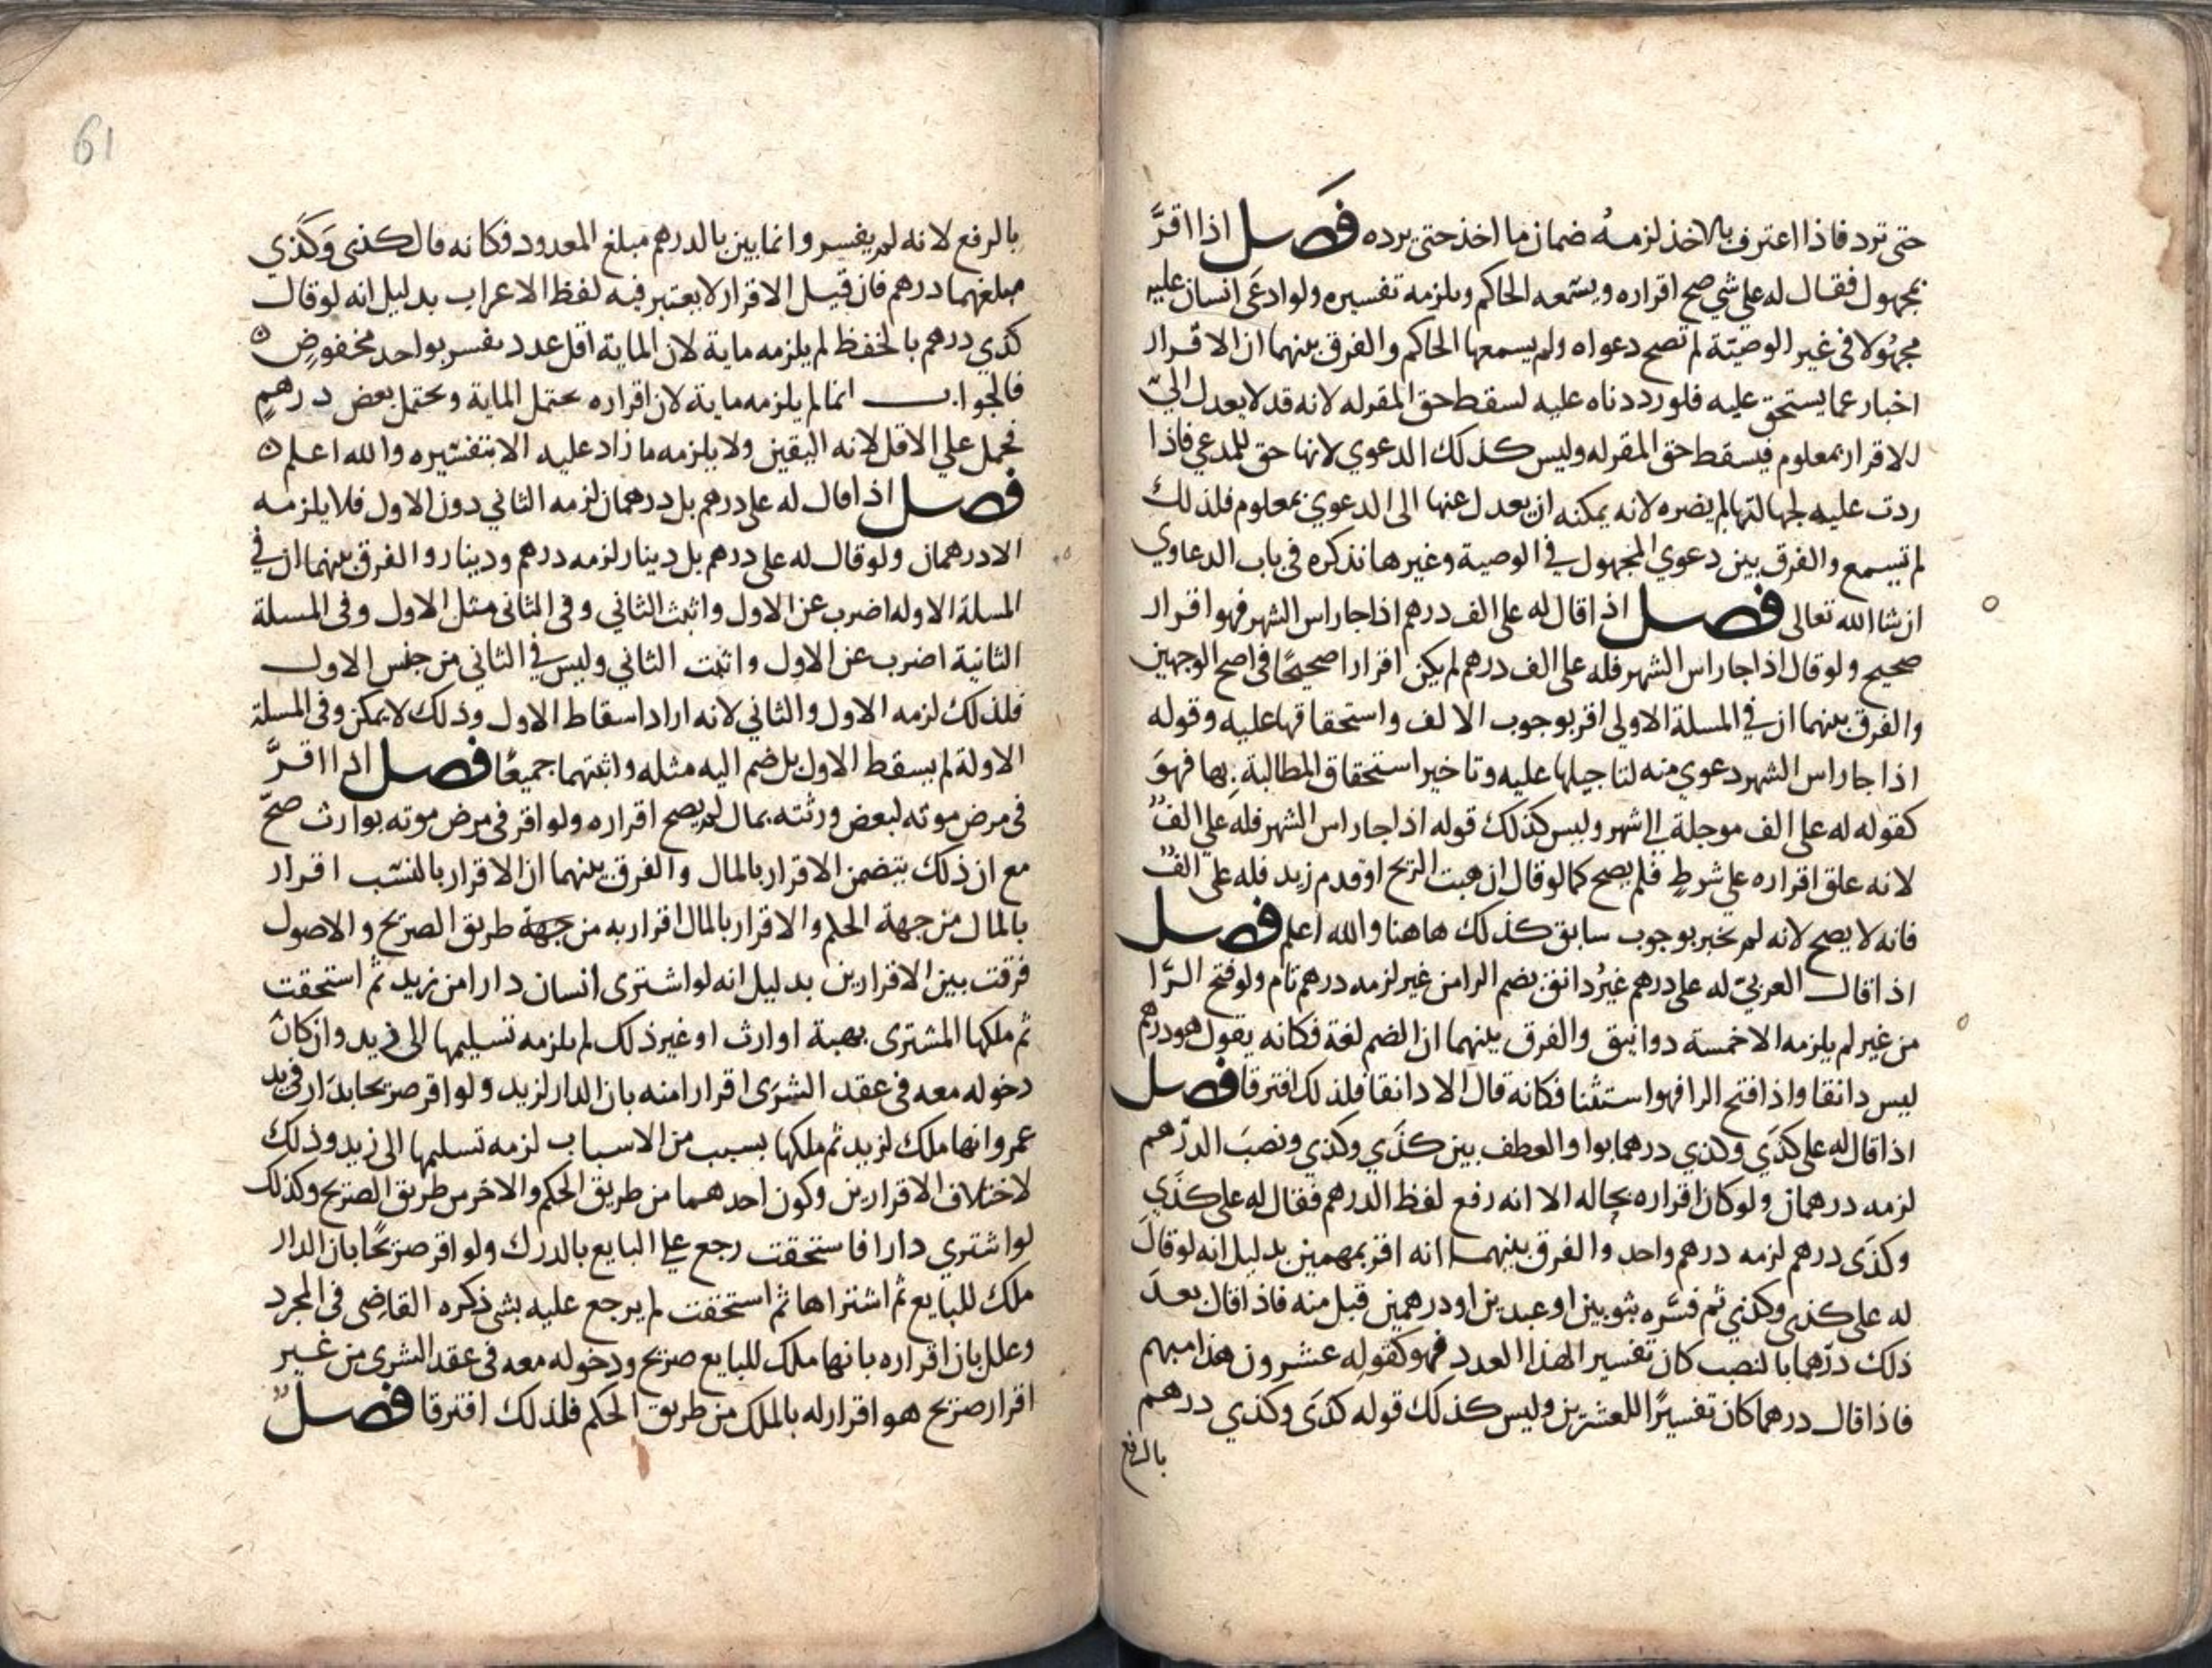 حتى ترد فاذا اعترف بالاخذ لزمهُ ضمان ما اخذ حتى يرده فَصــل اذا اقرَّ
بمجهول فقال له على شي صح اقراره ويسمعه الحاكم ويلزمه تفسيره ولو ادعَى انسان عليه
مجهُولا في غير الوصيّة لم تصح دعواه ولم يسمعها الحاكم والفرق بينهما ان الاقرار
اخبار عما يستحق عليه فلو رددناه عليه لسقط حق المقر له لانه قد لا يعدل الي
الاقرار بمعلوم فيسقط حق المقر له وليس كذلك الدعوي لانها حق للمدعي فاذا
ردت عليه لجهالتها لم يضره لانه يمكنه ان يعدل عنها الى الدعوي بمعلوم فلذلك
لم تسمع والفرق بين دعوي المجهول في الوصية وغيرها نذكره في باب الدعاوي
ان شا الله تعالى فصــل اذا قال له على الف درهم اذا جا راس الشهر فهو اقرار
صحيح ولو قال اذا جا راس الشهر فله على الف درهم لم يكن اقرارا صحيحًا في اصح الوجهين
والفرق بينهما ان في المسلة الاولى اقر بوجوب الالف واستحقاقها عليه وقوله
اذا جا راس الشهر دعوي منه لتاجيلها عليه وتاخير استحقاق المطالبة بها فهوَ
كقوله له على الف موجلة الى شهر وليس كذلك قوله اذا جا راس الشهر فله على الفٌ
لانه علق اقراره على شرطٍ فلم يصح كما لو قال ان هبت الريح او قدم زيد فله على الفٌ
فانه لا يصح لانه لم يخبر بوجوب سابق كذلك هاهنا والله اعلم فصــل
اذا قال العربيّ له على درهم غيرُ دانق بضم الرا من غير لزمه درهم تام ولو فتح الرَّا
من غير لم يلزمه الا خمسة دوانيق والفرق بينهما ان الضم لغة فكانه يقول هو درهم
ليس دانقا واذا فتح الرا فهو استثنا فكانه قال الا دانقا فلذلك افترقا فصــل
اذا قال له على كذَي وكذي درهما بواو العطف بين كذَي وكذي ونصبَ الدرهم
لزمه درهمان ولو كان اقراره بحاله الا انه رفع لفظ الدرهم فقال له على كذَي
وكذَى درهم لزمه درهم واحد والفرق بينهما انه اقر بمبهمين بدليل انه لو قال
له على كذى وكذي ثم فسَّره بثوبين او عبدين او درهمين قبل منه فاذا قال بعدَ
ذلك درْهما بالنصب كان تفسيرا لهذا العدد فهو كقوله عشرون هذا مبهم
فاذا قال درهما كان تفسيرًا للعشرين وليس كذلك قوله كذَى وكذي درهم
بالرفع
61
بالرفع لانه لم يفسر وانما بين بالدرهم مبلغ المعدود فكانه قال كذى وَكذَي
مبلغهما درهم فان قيل الاقرار لا يعتبر فيه لفظ الاعراب بدليل انه لو قال
كذي درهم بالخفظ لم يلزمه ماية لان الماية اقل عدد يفسر بواحد مخفوضٍ ه
فالجواب انما لم يلزمه ماية لان اقراره يحتمل الماية ويحتمل بعض درهمٍ
فحمل علي الاقل لانه اليقين ولا يلزمه ما زاد عليه الا بتفسيره والله اعلم ه
فصــل اذا قال له على درهم بل درهمان لزمه الثاني دون الاول فلا يلزمه
الا درهمان ولو قال له على درهم بل دينار لزمه درهم ودينار والفرق بينهما ان في
المسلة الاوله اضرب عن الاول واثبت الثاني وفي الثاني مثل الاول وفي المسلة
الثانية اضرب عن الاول واثبت الثاني وليس في الثاني من جنس الاول
فلذلك لزمه الاول والثاني لانه اراد اسقاط الاول وذلك لا يمكن وفي المسلة
الاولة لم يسقط الاول بل ضم اليه مثله واثبتهما جميعًا فصــل اذا اقرَّ
في مرض موته لبعض ورثته بمال لم يصح اقراره ولو اقر في مرض موته بوارث صحّ
مع ان ذلك يتضمن الاقرار بالمال والفرق بينهما ان الاقرار بالنسَب اقرار
بالمال من جهة الحكم والاقرار بالمال اقرار به من جهة طريق الصريح والاصول
فرقت بين الاقرارين بدليل انه لو اشترى انسان دارا من زيد ثم استحقت
ثم ملكها المشترى بهبة او ارث او غير ذلك لم يلزمه تسليمها الى زيد وان كان
دخوله معه في عقد الشرَى اقرارا منه بان الدار لزيد ولو اقر صريحا بدَار في يد
عمرو انها ملك لزيد ثم ملكها بسبب من الاسباب لزمه تسليمها الى زيد وذلك
لاختلاف الاقرارين وكون احدهما من طريق الحكم والاخر من طريق الصريح وكذلك
لو اشتري دارا فاستحقت رجع على البايع بالدرك ولو اقر صريحًا بان الدار
ملك للبايع ثم اشتراها ثم استحقت لم يرجع عليه بشي ذكره القاضى في المجرد
وعلل بان اقراره بانها ملك للبايع صريح ودخوله معه في عقد الشرى من غير
اقرار صريح هو اقرار له بالملك من طريق الحكم فلذلك افترقا فصــلٌ